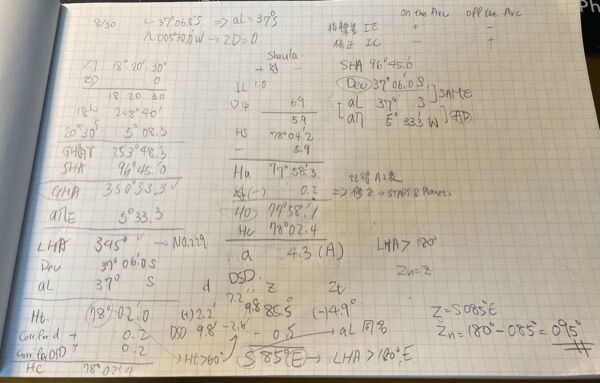 8/30
L 37°06.8'S ⇒ aL = 37°S
λ 005°30.0'W → ZD = 0.
on the Arc off the Arc
指標差 IE + -
修正 IC - +
ZT 18° 20' 30"
ZD 0
18 20 30
18h 248° 40'
20m30s 5° 08.3
GHAγ 253° 48.3
SHA 96° 45.0
GHA 350° 33.3
aλE 5° 33.3
LHA 345° → NO.229
Dec 37° 06.0 S
aL 37° S
Ht. 78° 02.0
Corr. for d + 0.2
Corr. for DSD + 0.2
Hc 78° 02.4
Shaula
+ -
IC 1.0
6.9
5.9
HS 78° 04.2
- 5.9
Ha 77° 58.3
(-) 0.2
Ho 77° 58.1
Hc 78° 02.4
a 4.3 (A)
SHA 96° 45.0
Dec 37° 06.0 S
aL 37° S SAME
aλ 5° 33.3 W
⇒ 修正 → STARS & Planet.
LHA > 180°
Zn = Z
d DSD. Z Zt
(+) 2.2' 9.8 85.5° (-)4.9°
DSD 9.8' -2.6' - 0.5 aL 同名
Ht>60° S 85° E → LHA > 180°, E
Z = S085°E
Zn = 180° - 085° = 095°